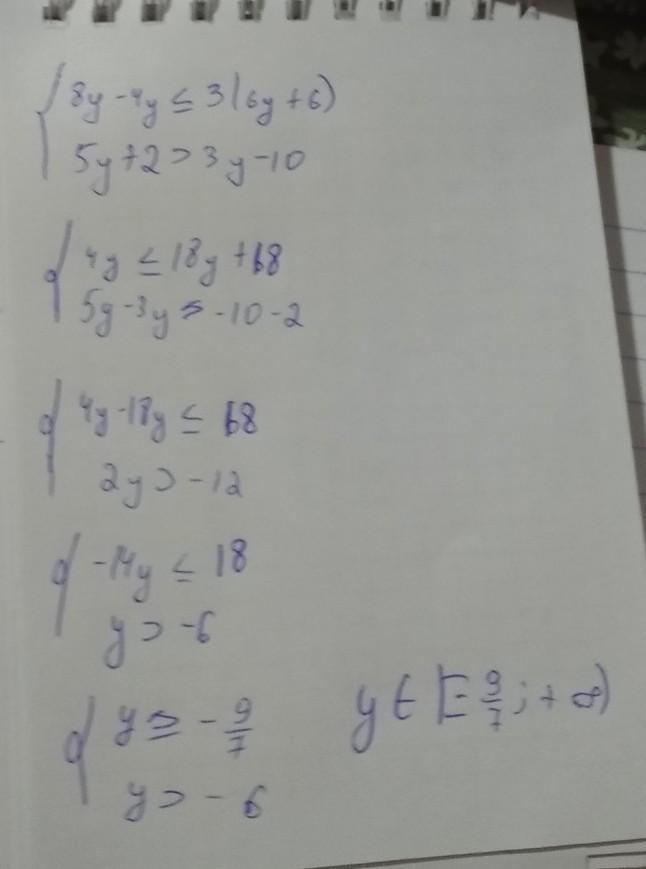 8y - 4y ≤ 3(6y + 6)
5y + 2 > 3y - 10
4y ≤ 18y + 18
5y - 3y > -10 - 2
4y - 18y ≤ 18
2y > -12
-14y ≤ 18
y > -6
y ≥ - 9/7
y > - 6
y ∈ [- 9/7 ; + ∞)